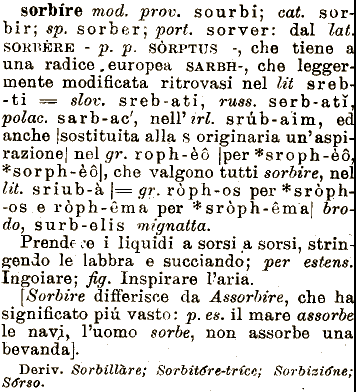 sorbíre mod. prov. sourbi; cat. sor-
bir; sp. sorber; port. sorver: dal lat.
SORBÈRE - p. p. SÒRPTUS -, che tiene a
una radice europea SARBH-, che legger-
mente modificata ritrovasi nel lit sreb-
-ti = slov. sreb-ati, russ. serb-atĭ,
polac. sarb-ac', nell' irl. srúb-aim, ed
anche |sostituita alla s originaria un'aspi-
razione| nel gr. roph-èô |per *sroph-èô,
*sorph-èô|, che valgono tutti sorbire, nel
lit. sriub-à |= gr. ròph-os per *sròph-
-os e ròph-êma per *sròph-êma| bro-
do, surb-elis mignatta.
Prendere i liquidi a sorsi a sorsi, strin-
gendo le labbra e succiando; per estens.
Ingoiare; fig. Inspirare l'aria.
[Sorbire differisce da Assorbire, che ha
significato piú vasto: p. es. il mare assorbe
le navi, l'uomo sorbe, non assorbe una
bevanda].
Deriv. Sorbillàre; Sorbitóre-tríce; Sorbizióne;
Sórso.